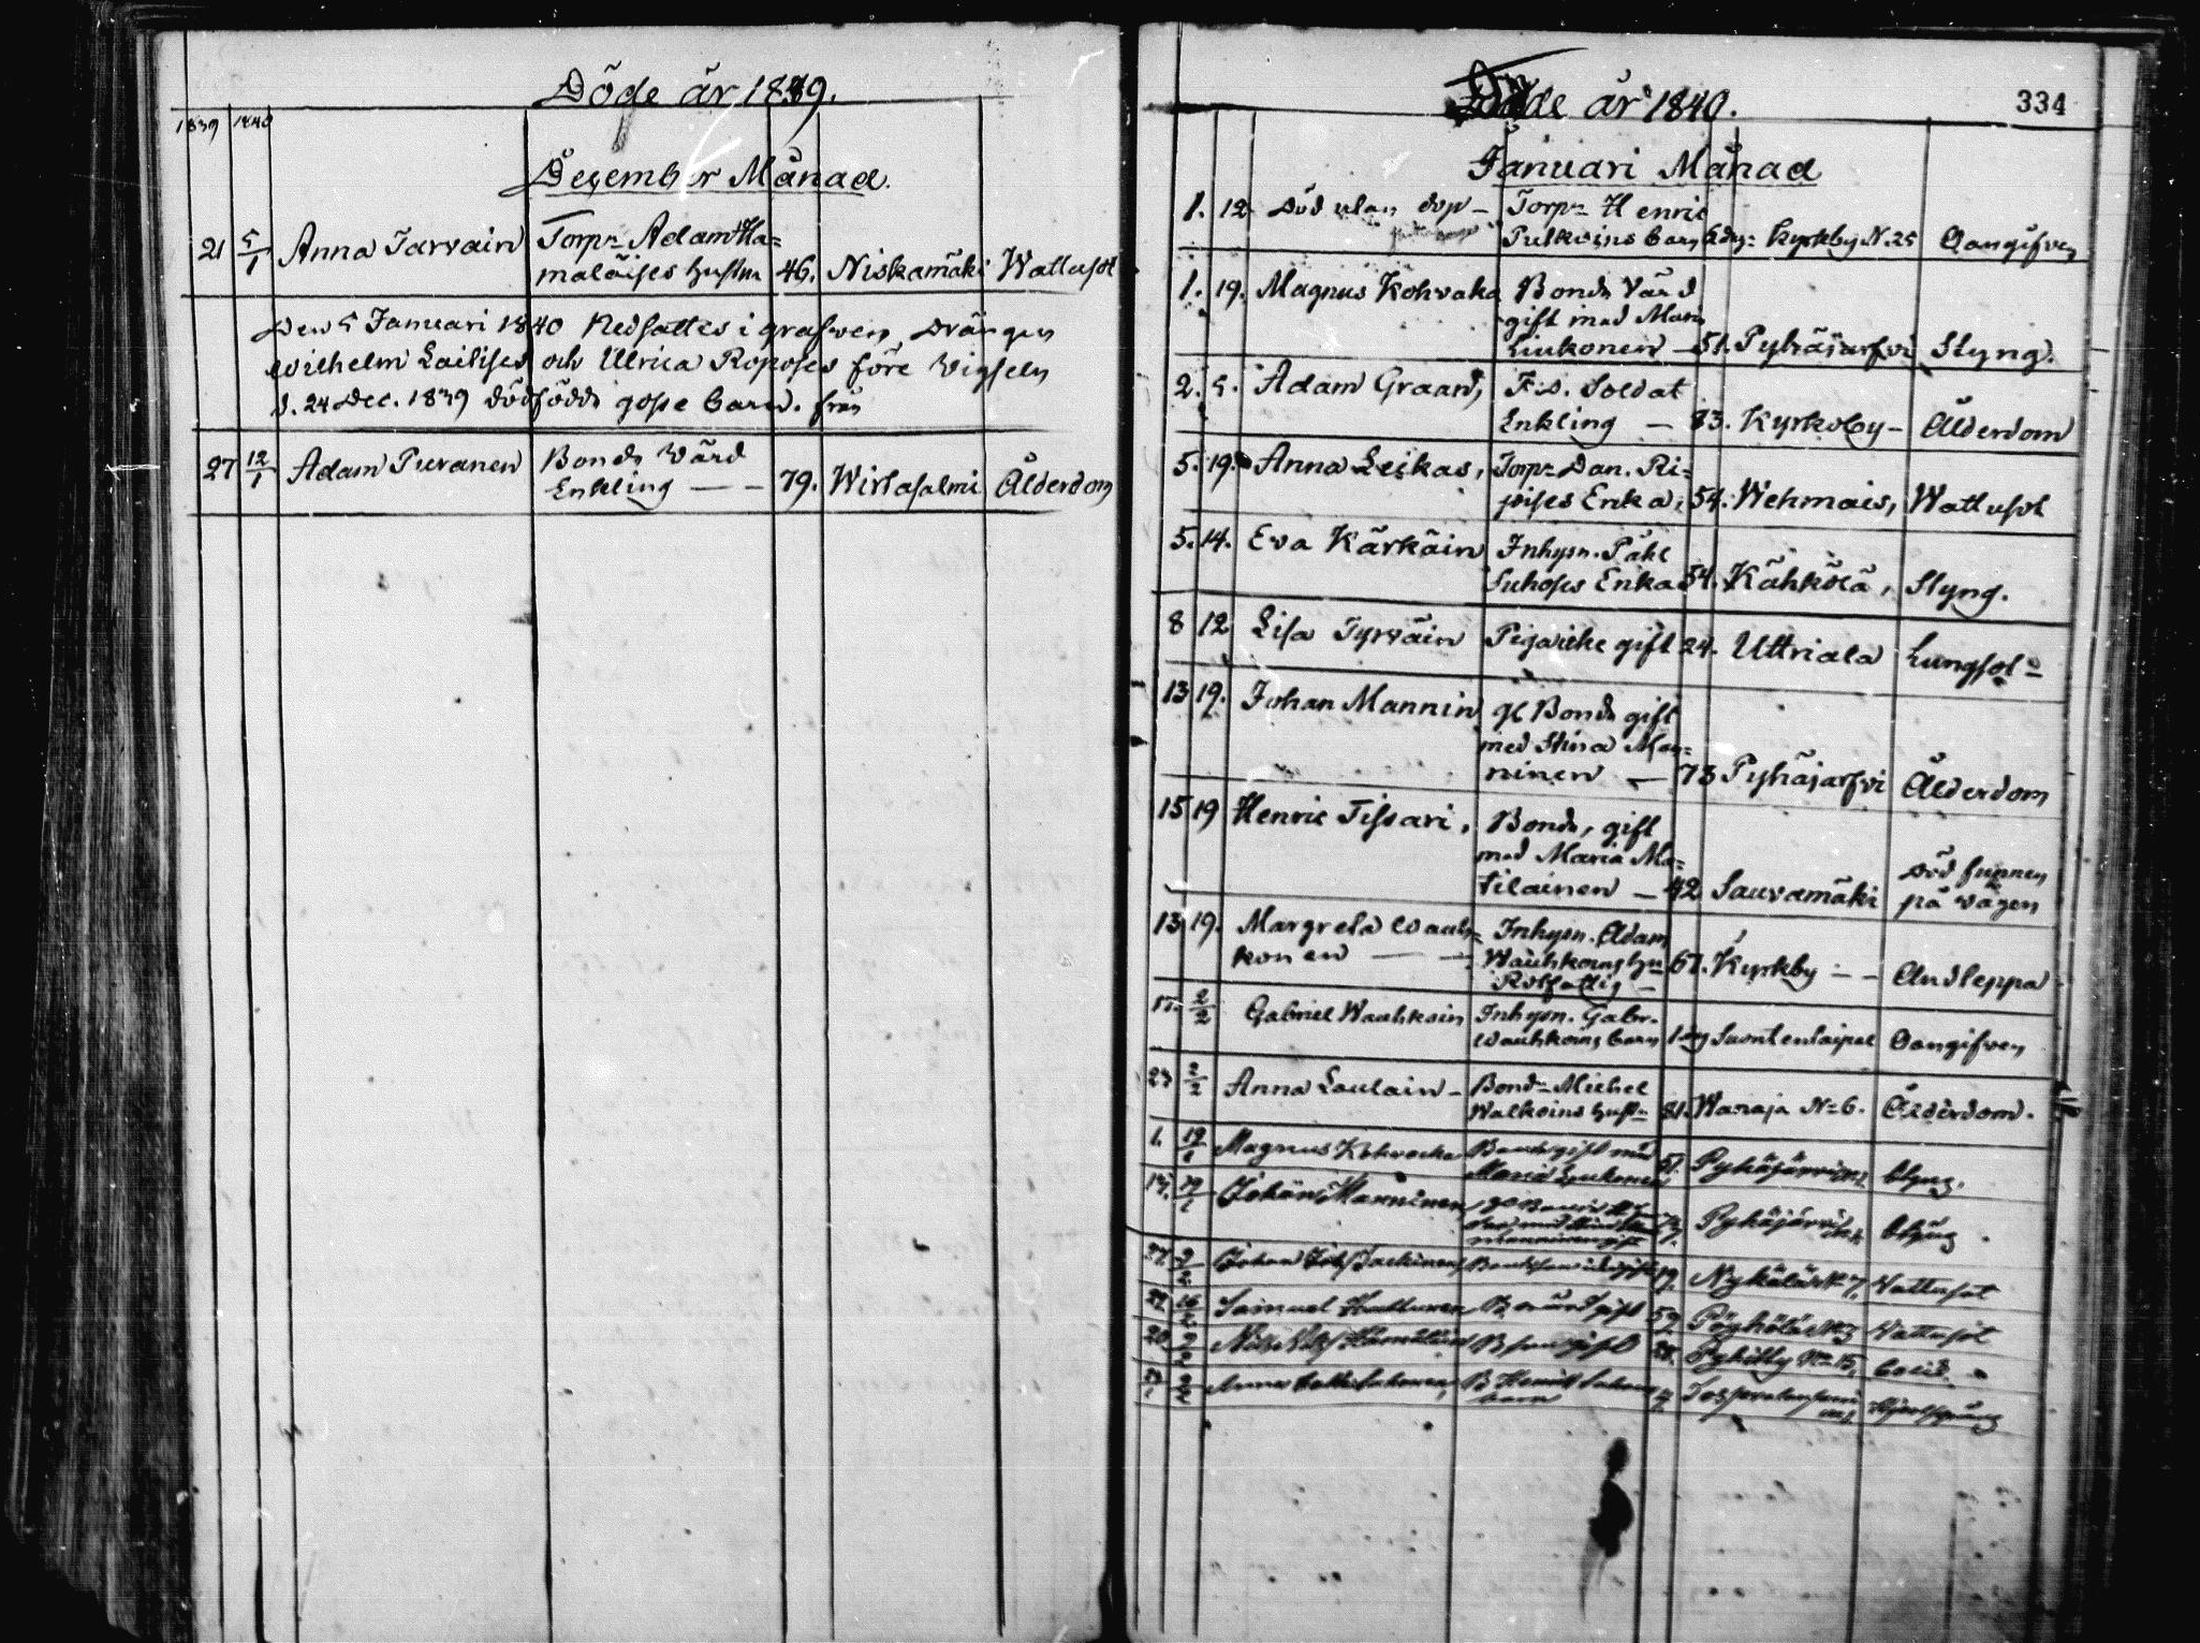 Döde år 1839.
1839 1840
December Månad.
21 5/1 Anna Tarvain Torpr Adam Ha=
maläises hustru 46. Niskamäki Wattusot
Den 5 Januari 1840 Nedsattes i grafven, Drängen
Wilhelm Laitises och Ulrica Roposes före Vigseln
d. 24 Dec. 1839 dödfödde gosse barn. från
27 12/1 Adam Puranen Bonde Värd
Enkling — — 79. Wirtasalmi Ålderdom
334
Döde år 1840.
Januari Månad
1. 12 Död utan dop — Torpr Henric
Pulkoins barn 6 dag: Kyrkby N. 25 Oangifven
1. 19. Magnus Kohvaka Bonde Värd
gift med Maria
Liukonen — 51. Pyhäjärfvi Styng.
2. 5. Adam Graan, F.d. Soldat
Enkling — 83. Kyrkoby — Ålderdom
5. 19. Anna Leskas, Torpr Dan. Ri=
poises Enka, 54. Wehmais, Wattusot
5. 14. Eva Kärkäin Inhysn. Påhl
Suhoses Enka 54. Kähkölä, Styng.
8 12 Lisa Tyrväin Piga icke gift 24. Uttriala Lungsot=
13 19. Johan Mannin gl Bonde gift
med Stina Man=
ninen — 73 Pyhäjärfvi Ålderdom
15 19 Henric Tissari, Bonde, gift
med Maria Ma=
tilainen — 42 Sauvamäki Död funnen
på vägen
13 19. Margreta Wauh=
konen — — Inhysn. Adam
Wauhkoins hu 67. Kyrkby — — Andteppa
Rotfattig —
15. 2/2 Gabriel Wauhkoin Inhysn. Gabr.
Wauhkoins barn 1 Suontentaipal Oangifven
23 2/2 Anna Laulain — Bondn Michel
Walkoins hustr 81. Waraja No 6. Ålderdom.
1. 19/1 Magnus Kohvacka Bonde gift med
Maria Liukonen 51. Pyhäjärvi Styng.
13. 19/1 Johan Manninen 73. Pyhäjärvi Styng.
27. 9/2 Johan 19. Nykälä No 7. Wattusot
27 16/2 Samuel Huttunen B. värd gift 59. Pöyhölä Wattusot
20 9/2 Nils B. son gift 28. Pykitty No 15. Colid.
B. Henrik
barn